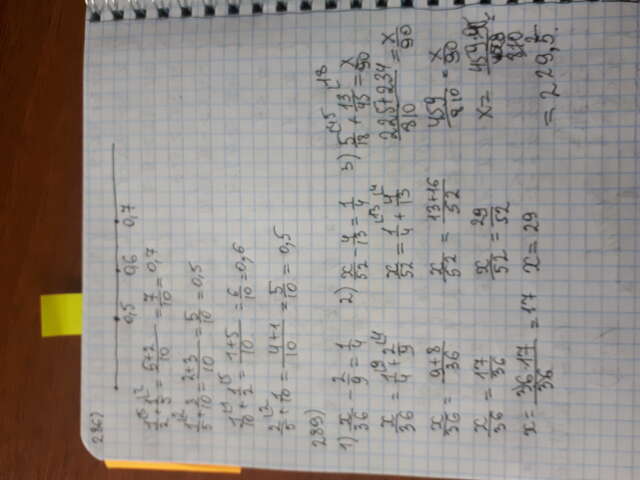 286)
0,5 0,6 0,7
1/2 + 1/5 = 5+2/10 = 7/10 = 0,7
1/5 + 3/10 = 2+3/10 = 5/10 = 0,5
1/10 + 1/2 = 1+5/10 = 6/10 = 0,6
2/5 + 1/10 = 4+1/10 = 5/10 = 0,5
289)
1) x/36 - 2/9 = 1/4
x/36 = 1/4 + 2/9
x/36 = 9+8/36
x/36 = 17/36
x = 36·17/36 = 17
2) x/52 - 4/13 = 1/4
x/52 = 1/4 + 4/13
x/52 = 13+16/52
x/52 = 29/52
x = 29
3) 5/18 + 13/45 = x/90
225+234/810 = x/90
459/810 = x/90
x = 459·90/810 =
= 229,5